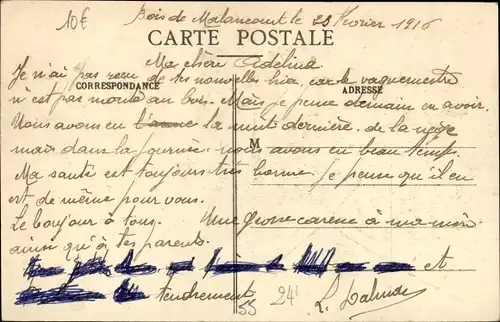 10€
Bois de Malancourt le 23 Février 1916
CARTE POSTALE
Ma chère Adelina
Je n'ai pas reçu de tes nouvelles hier, car le vaguemestre
CORRESPONDANCE
ADRESSE
n'est pas monté au bois. Mais je pense demain en avoir.
Nous avons eu la nuit dernière de la neige
M
mais dans la journée nous avons eu beau temps.
Ma santé est toujours très bonne je pense qu'il en
est de même pour vous.
Le bonjour à tous. Une grosse caresse à ma mère
ainsi qu'à tes parents.
et
tendrement
L.
55
24